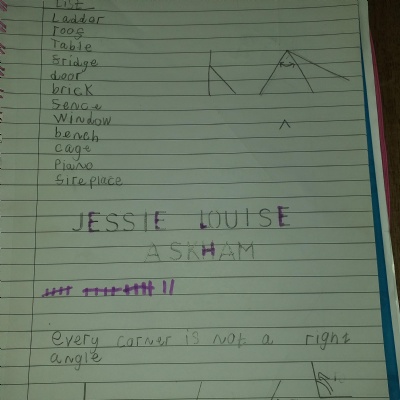 List
Ladder
roof
Table
fridge
door
brick
fence
Window
bench
cage
Piano
fireplace
JESSIE LOUISE
ASKHAM
every corner is not a right
angle